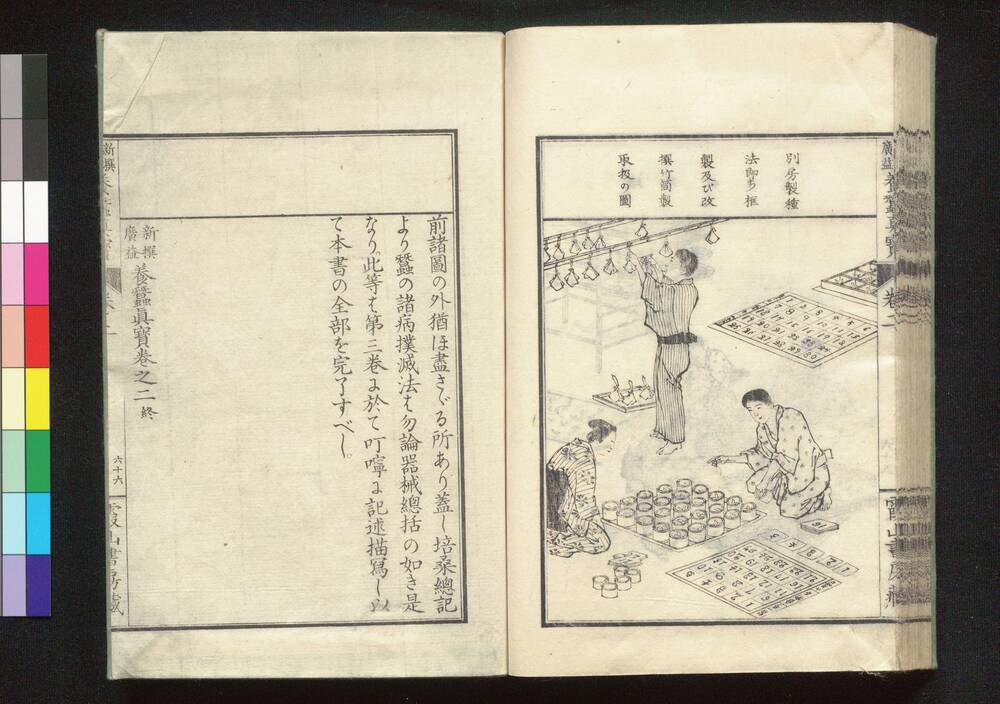 別房製種
法即ち框
製及び改
撰竹筒製
取扱の圖
廣益
養蠶眞寶
卷二
霞山書房藏
前諸圖の外猶ほ盡さゞる所あり蓋し培桑總記
より蠶の諸病撲滅法は勿論器械總括の如き是
なり。此等は第三卷に於て叮嚀に記述描寫し以
て本書の全部を完了すべし。
新撰
廣益
養蠶眞寶卷之二
終
新撰
六十六
霞山書房藏